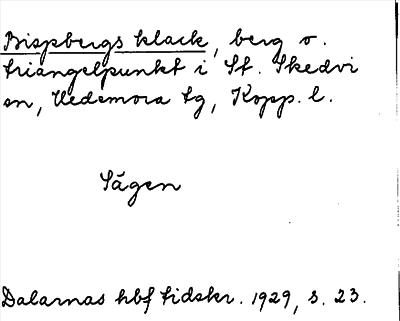 Bispbergs klack, berg o.
triangelpunkt i St. Skedvi
sn, Hedemora tg, Kopp. l.
Sägen
Dalarnas hbf tidskr. 1929, s. 23.